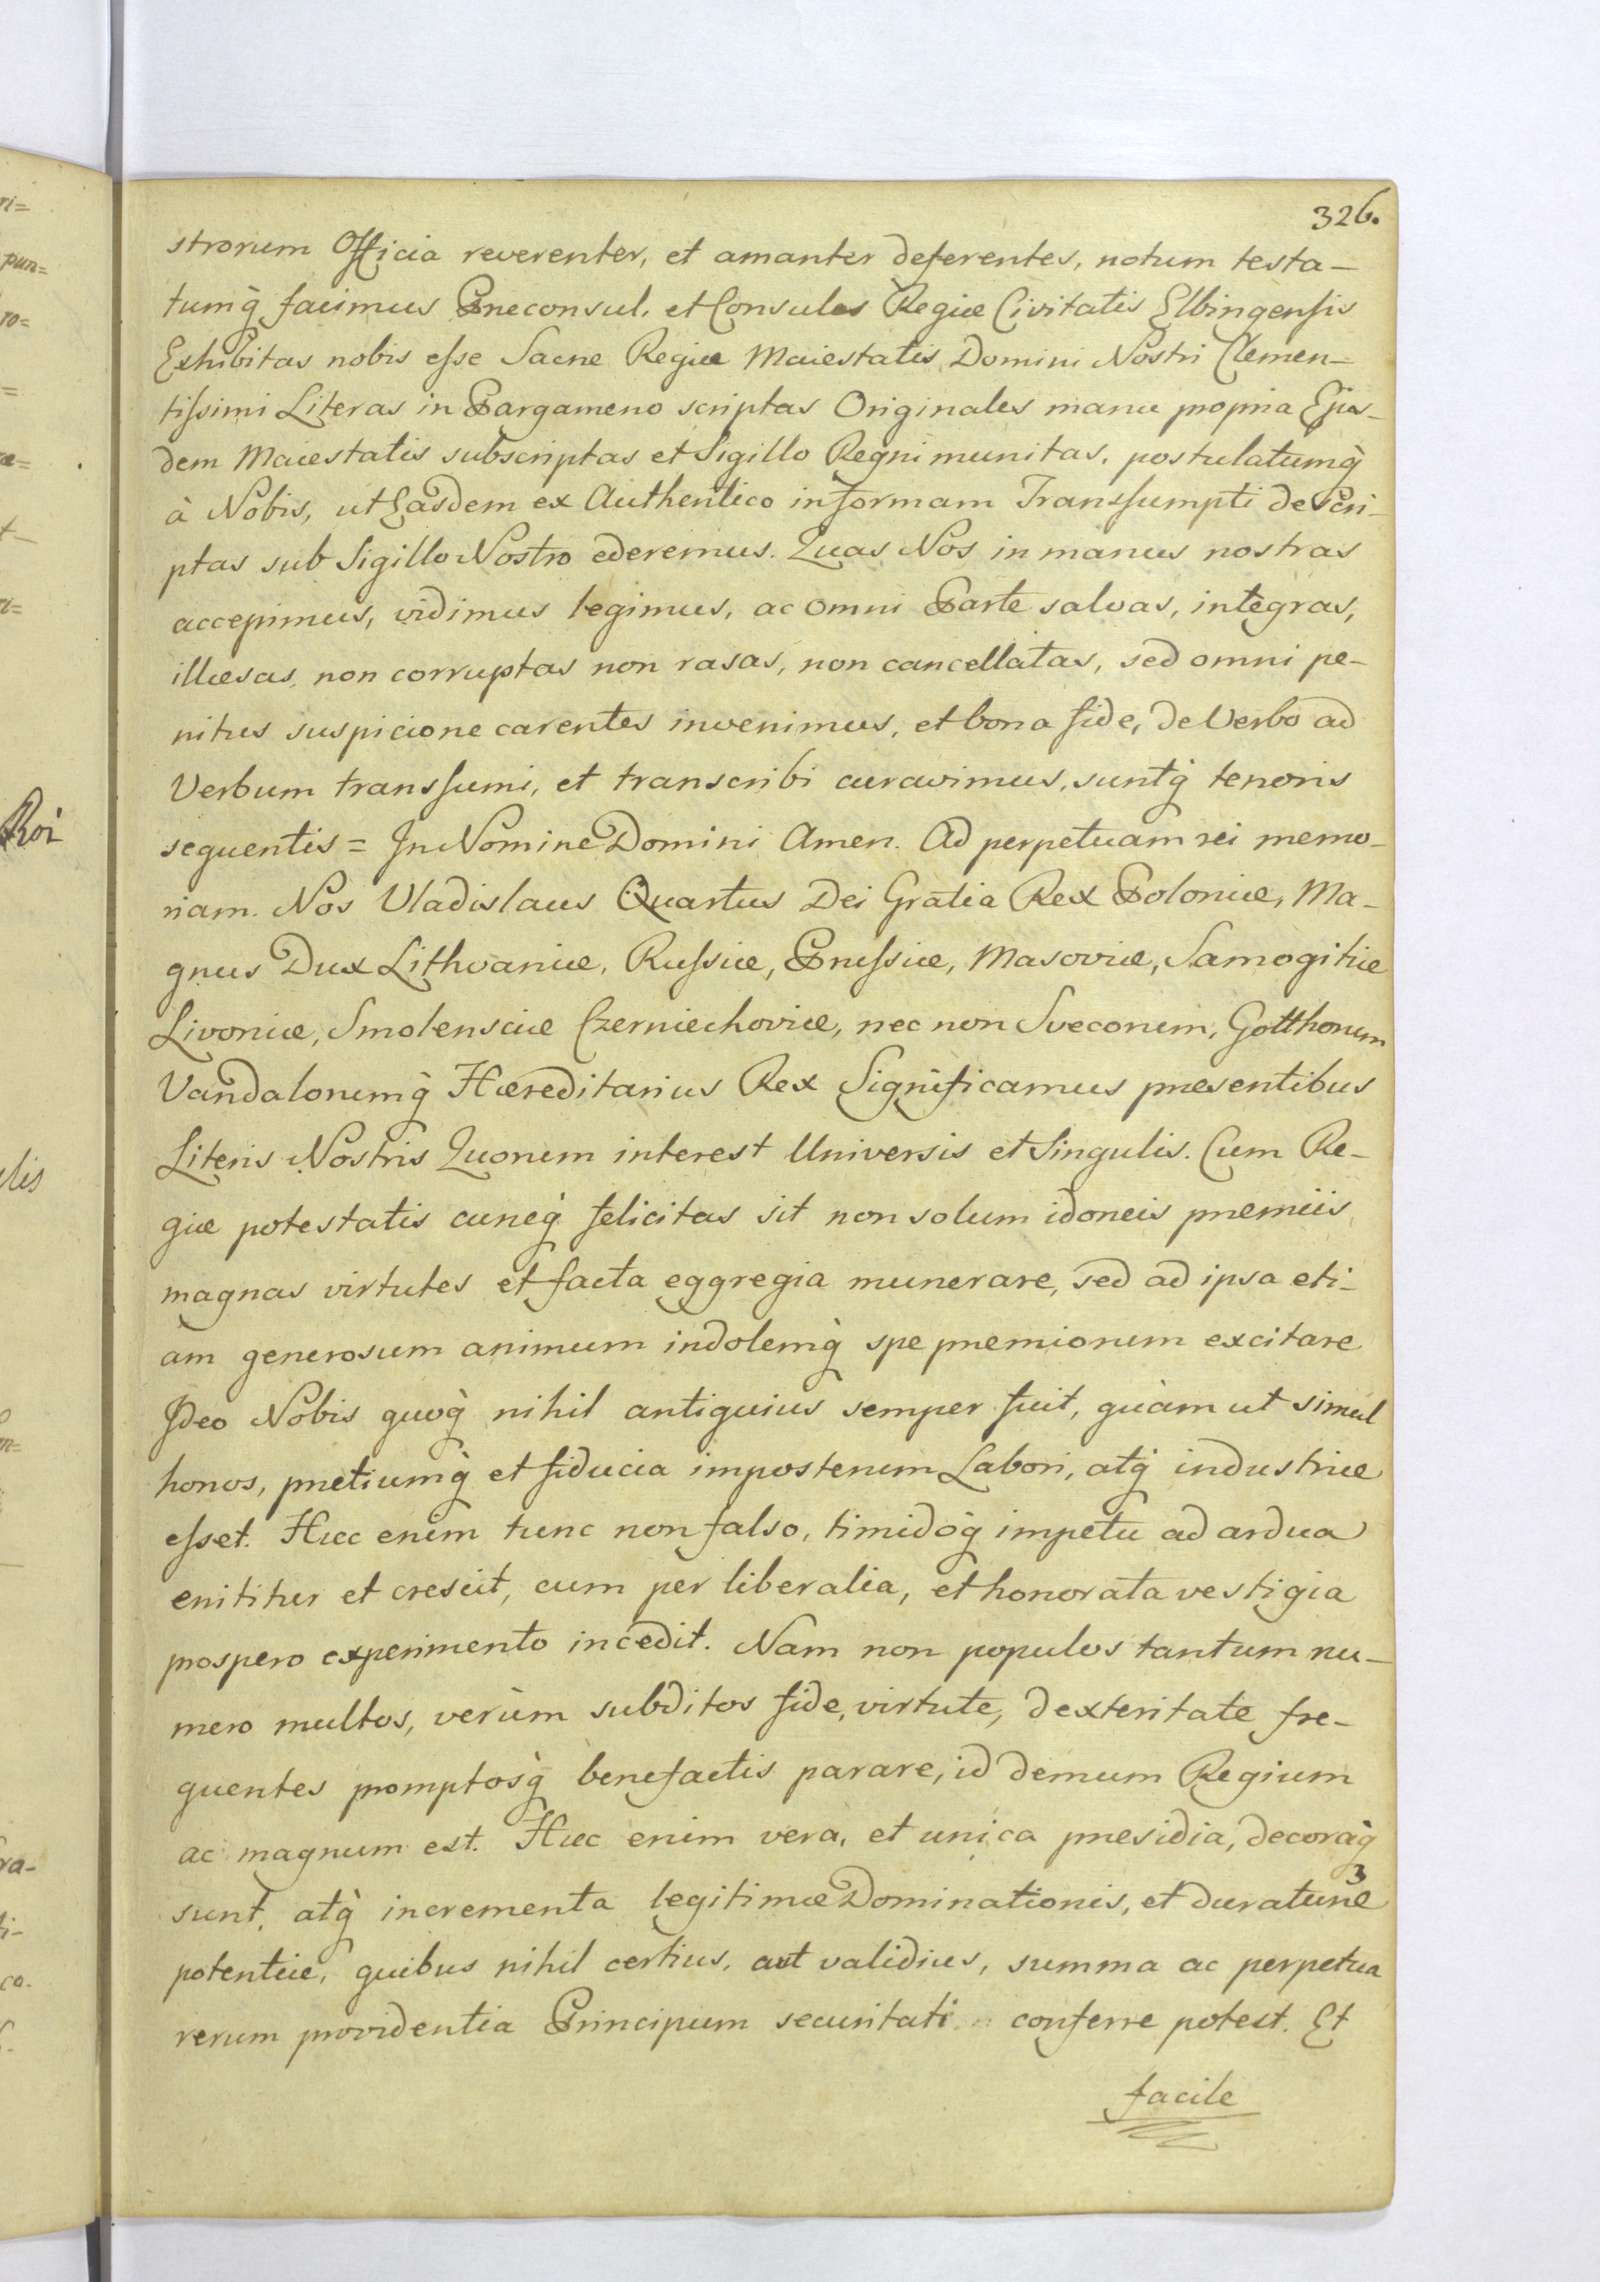 326.
strorum Officia reverenter, et amanter deferentes, notum testa-
tumq̀ facimus Præconsul, et Consules Regiæ Civitatis Elbingensis
Exhibitas nobis esse Sacræ Regiæ Maiestatis Domini Nostri Clemen=
tissimi Literas in Pargameno scriptas Originales manu propria Ejus-
dem Maiestatis subscriptas et Sigillo Regni munitas, postulatumq̀
à Nobis, ut Easdem ex Authentico in formam Transsumpti descri-
ptas sub Sigillo Nostro ederemus. Quas Nos in manus nostras
accepimus, vidimus legimus, ac omni Parte salvas, integras,
illæsas, non corruptas non rasas, non cancellatas, sed omni pe-
nitus suspicione carentes invenimus, et bona fide, de Verbo ad
Verbum transsumi, et transcribi curavimus, suntq̀ tenoris
sequentis = In Nomine Domini Amen. Ad perpetuam rei memo-
riam. Nos Vladislaus Quartus Dei Gratia Rex Poloniæ, Ma-
gnus Dux Lithvaniæ, Russiæ, Prussiæ, Masoviæ, Samogitiæ
Livoniæ, Smolensciæ Czerniechoviæ, nec non Svecorum, Gotthorum
Vandalorumq̀ Hæreditarius Rex Significamus præsentibus
Literis Nostris Quorum interest Universis et Singulis. Cum Re-
giæ potestatis curæq̀ felicitas sit non solum idoneis præmiis
magnas virtutes et facta eggregia munerare, sed ad ipsa eti-
am generosum animum indolemq̀ spe præmiorum excitare
Ideo Nobis quoq̀ nihil antiquius semper fuit, quàm ut simul
honos, pretiumq̀ et fiducia imposterum Labori, atq̀ industriæ
esset. Hæc enim tunc non falso, timidoq̀ impetu ad ardua
enititur et crescit, cum per liberalia, et honorata vestigia
prospero experimento incedit. Nam non populos tantum nu-
mero multos, verùm subditos fide, virtute, dexteritate fre-
quentes promptosq̀ benefactis parare, id demum Regium
ac magnum est. Hæc enim vera, et unica præsidia, decoraq̀
sunt, atq̀ incrementa legitimæ Dominationis, et duraturæ
potentiæ, quibus nihil certius, aut validius, summa ac perpetua
rerum providentia Principum securitati conferre potest. Et
facile